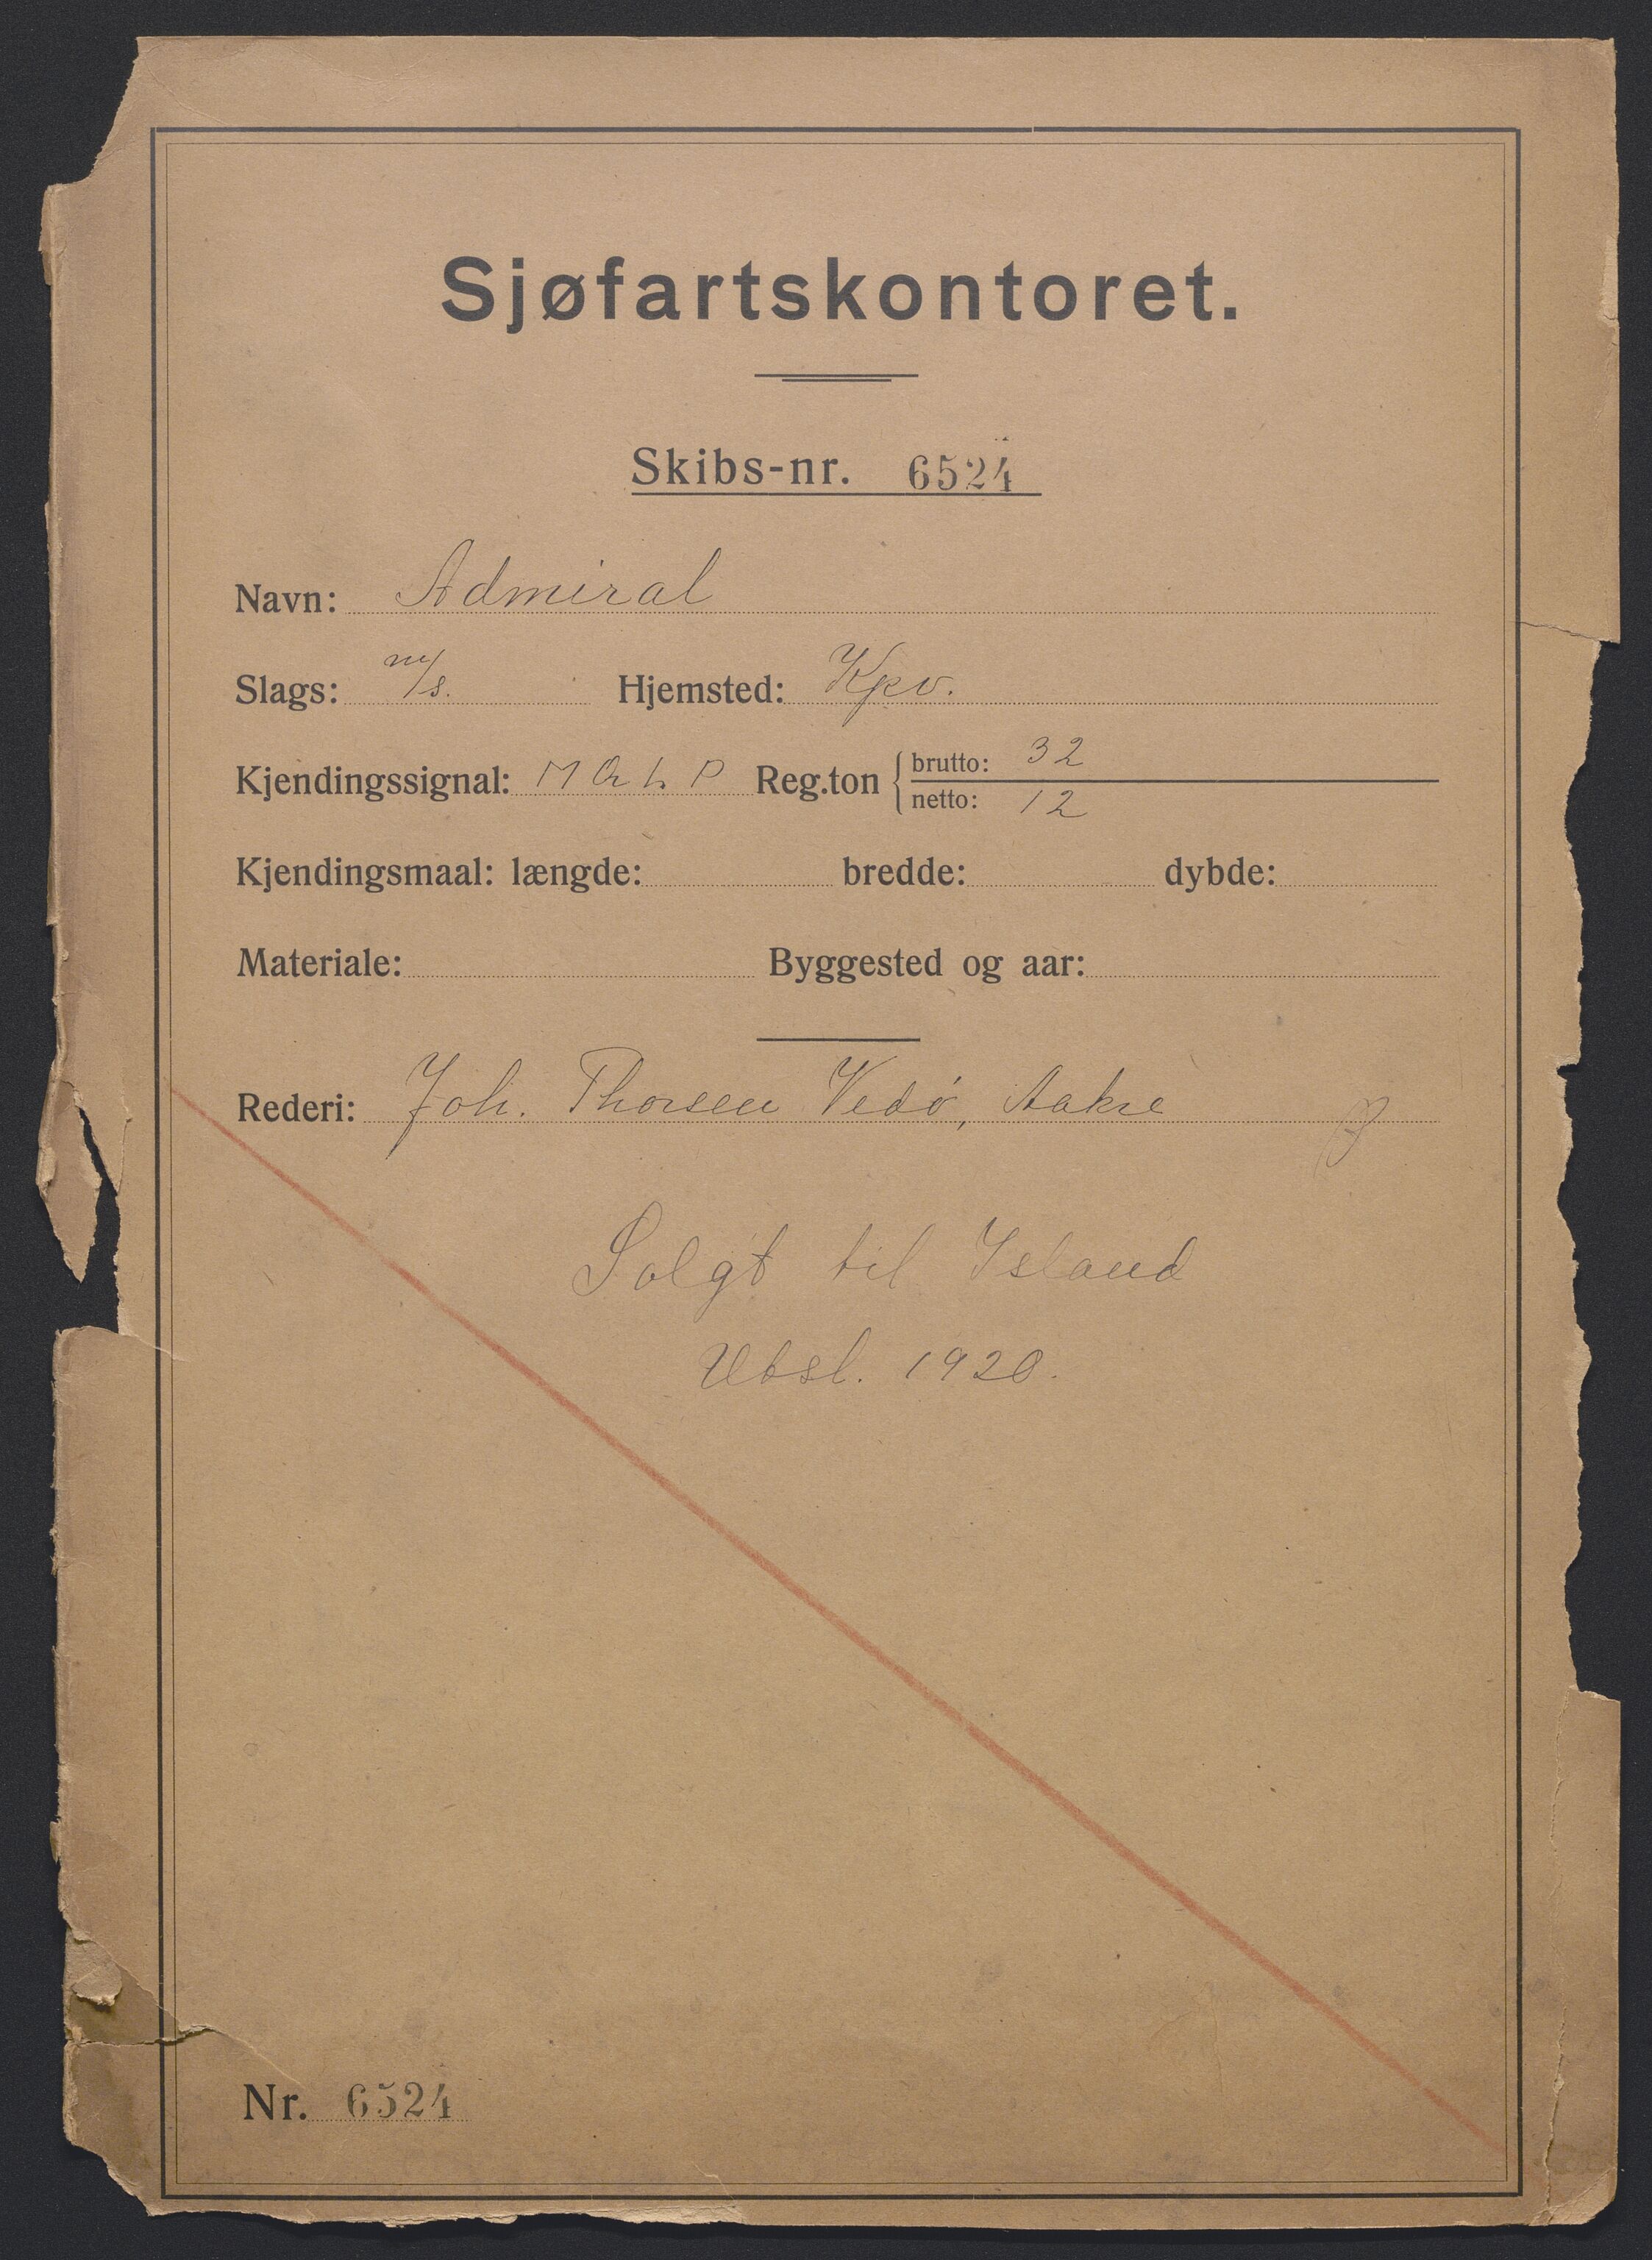 Sjøfartskontoret.
Skibs-nr. 6524
Navn: Admiral
Slags: m/s. Hjemsted: Kpv.
Kjendingssignal: M Q L P Reg.ton brutto: 32
netto: 12
Kjendingsmaal: længde: bredde: dybde:
Materiale: Byggested og aar:
Rederi: Joh. Thorsen Vedö, Aakre
Solgt til Island
Utsl. 1920.
Nr. 6524